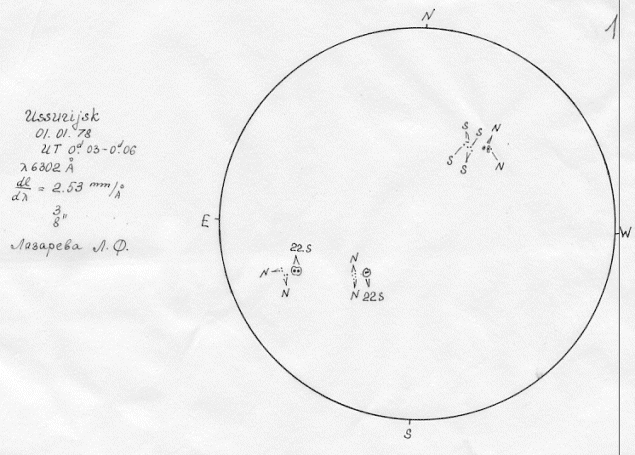 N
1
Ussurijsk
01. 01. 78
UT 0ᵈ.03-0ᵈ.06
λ 6302 Å
dl/dλ = 2.53 mm/Å
3
8"
Лазарева Л. Ф.
S S N
S S N
E
W
22.S N
N
N N 22S
S